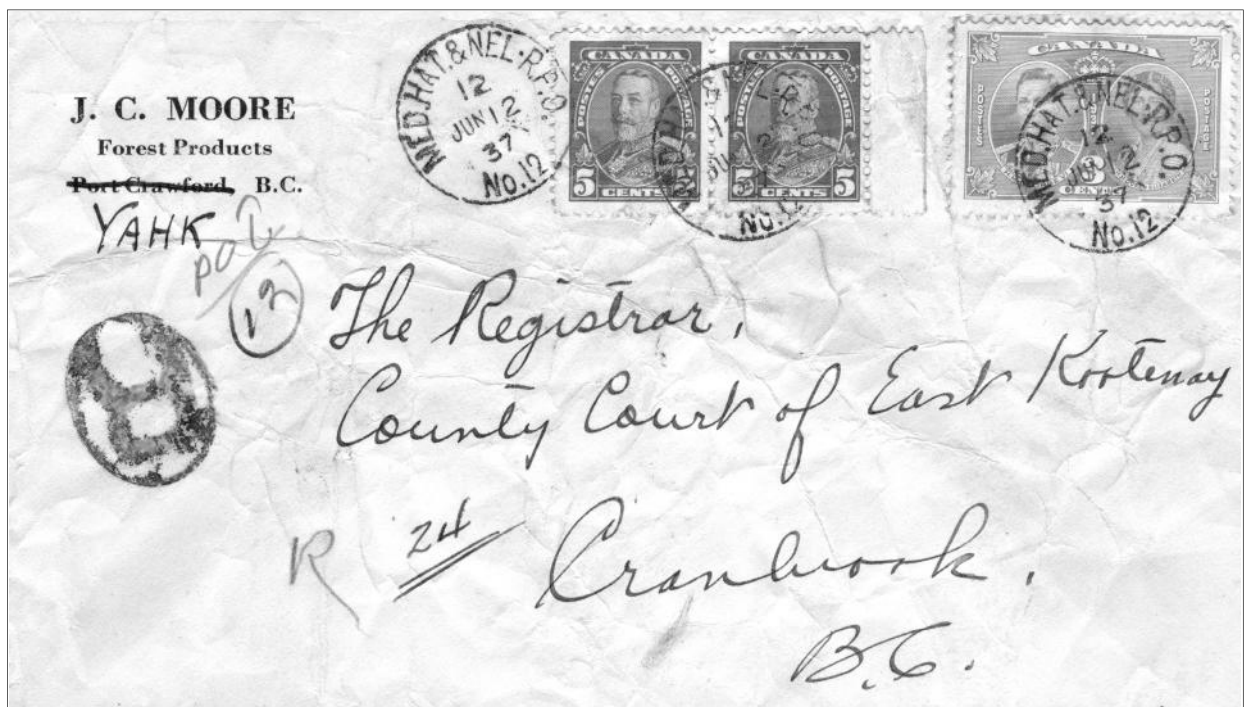 J. C. MOORE
Forest Products
Port Crawford, B.C.
YAHK
12
MED.HAT.&NEL·R.P.O.
12
JUN 12
37
No.12
CANADA
POSTES POSTAGE
5 CENTS 5
CANADA
POSTES POSTAGE
5 CENTS 5
No.12
CANADA
POSTES POSTAGE
1937
3
CENTS
MED.HAT.&NEL·R.P.O.
12
JUN 12
37
No.12
The Registrar,
County Court of East Kootenay
R 24
Cranbrook,
B.C.